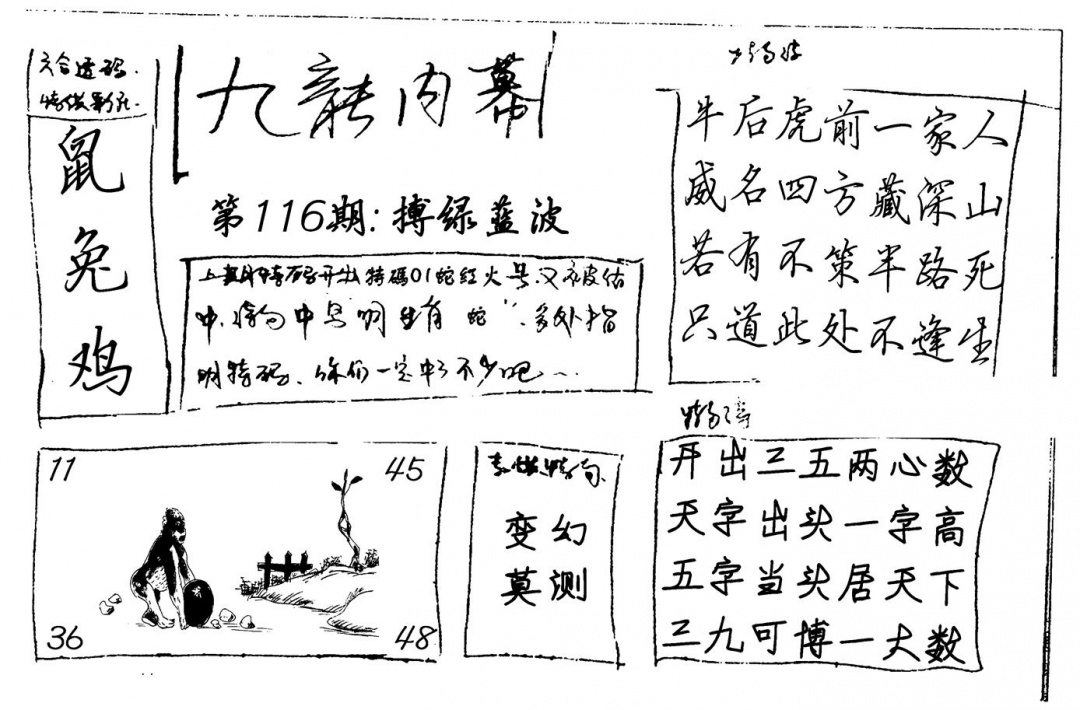 六合透码.
鼠
兔
鸡
九龍内幕
第116期:搏绿蓝波
上期特码开出特碼01蛇红火号又被估
中.特句中号明生肖"蛇".多处指
明特码、你们一定中了不少吧...
牛后虎前一家人
威名四方藏深山
若有不策半路死
只道此处不逢生
11
45
36
48
变幻
莫测
开出三五两心数
天字出头一字高
五字当头居天下
三九可博一大数